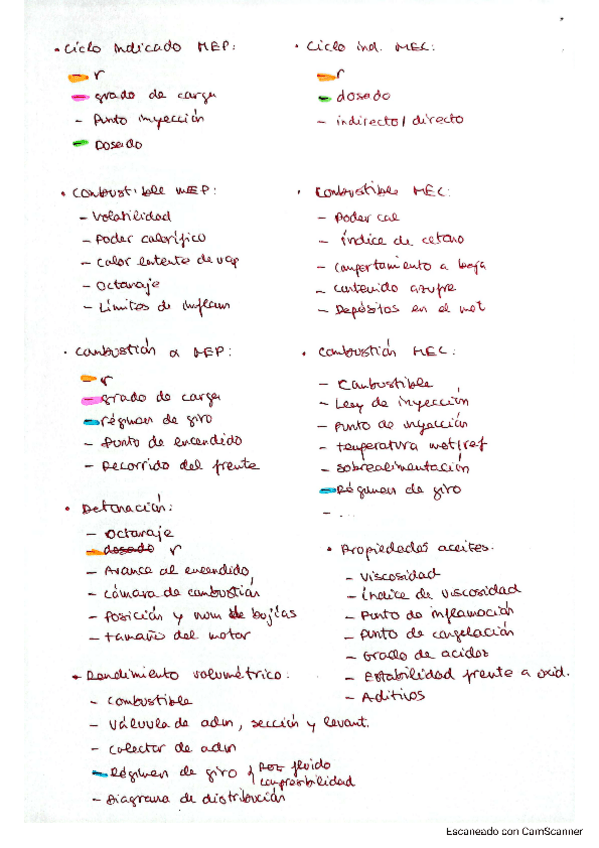 • Ciclo Indicado MEP:
- r
- grado de carga
- Punto inyección
- Dosado
• Ciclo ind. MEC:
- r
- dosado
- indirecto / directo
• Combustible MEP:
- Volatilidad
- Poder calorífico
- Calor latente de vap
- Octanaje
- Límites de inflam
• Combustible MEC:
- Poder cal
- Índice de cetano
- Comportamiento a baja
- Contenido azufre
- Depósitos en el mot
• Combustión MEP:
- r
- grado de carga
- régimen de giro
- Punto de encendido
- Recorrido del frente
• Combustión MEC:
- Combustible
- Ley de inyección
- Punto de inyección
- temperatura mot/ref
- sobrealimentación
- Régimen de giro
- ...
• Detonación:
- Octanaje
- dosado r
- Avance al encendido
- Cámara de combustión
- Posición y num de bujías
- tamaño del motor
• Propiedades aceites.
- Viscosidad
- Índice de viscosidad
- Punto de inflamación
- Punto de congelación
- Grado de acidos
- Estabilidad frente a oxid.
- Aditivos
• Rendimiento volumétrico:
- Combustible
- Válvula de adm, sección y levant.
- Colector de adm
- Régimen de giro fluido
compresibilidad
- Diagrama de distribución
Escaneado con CamScanner